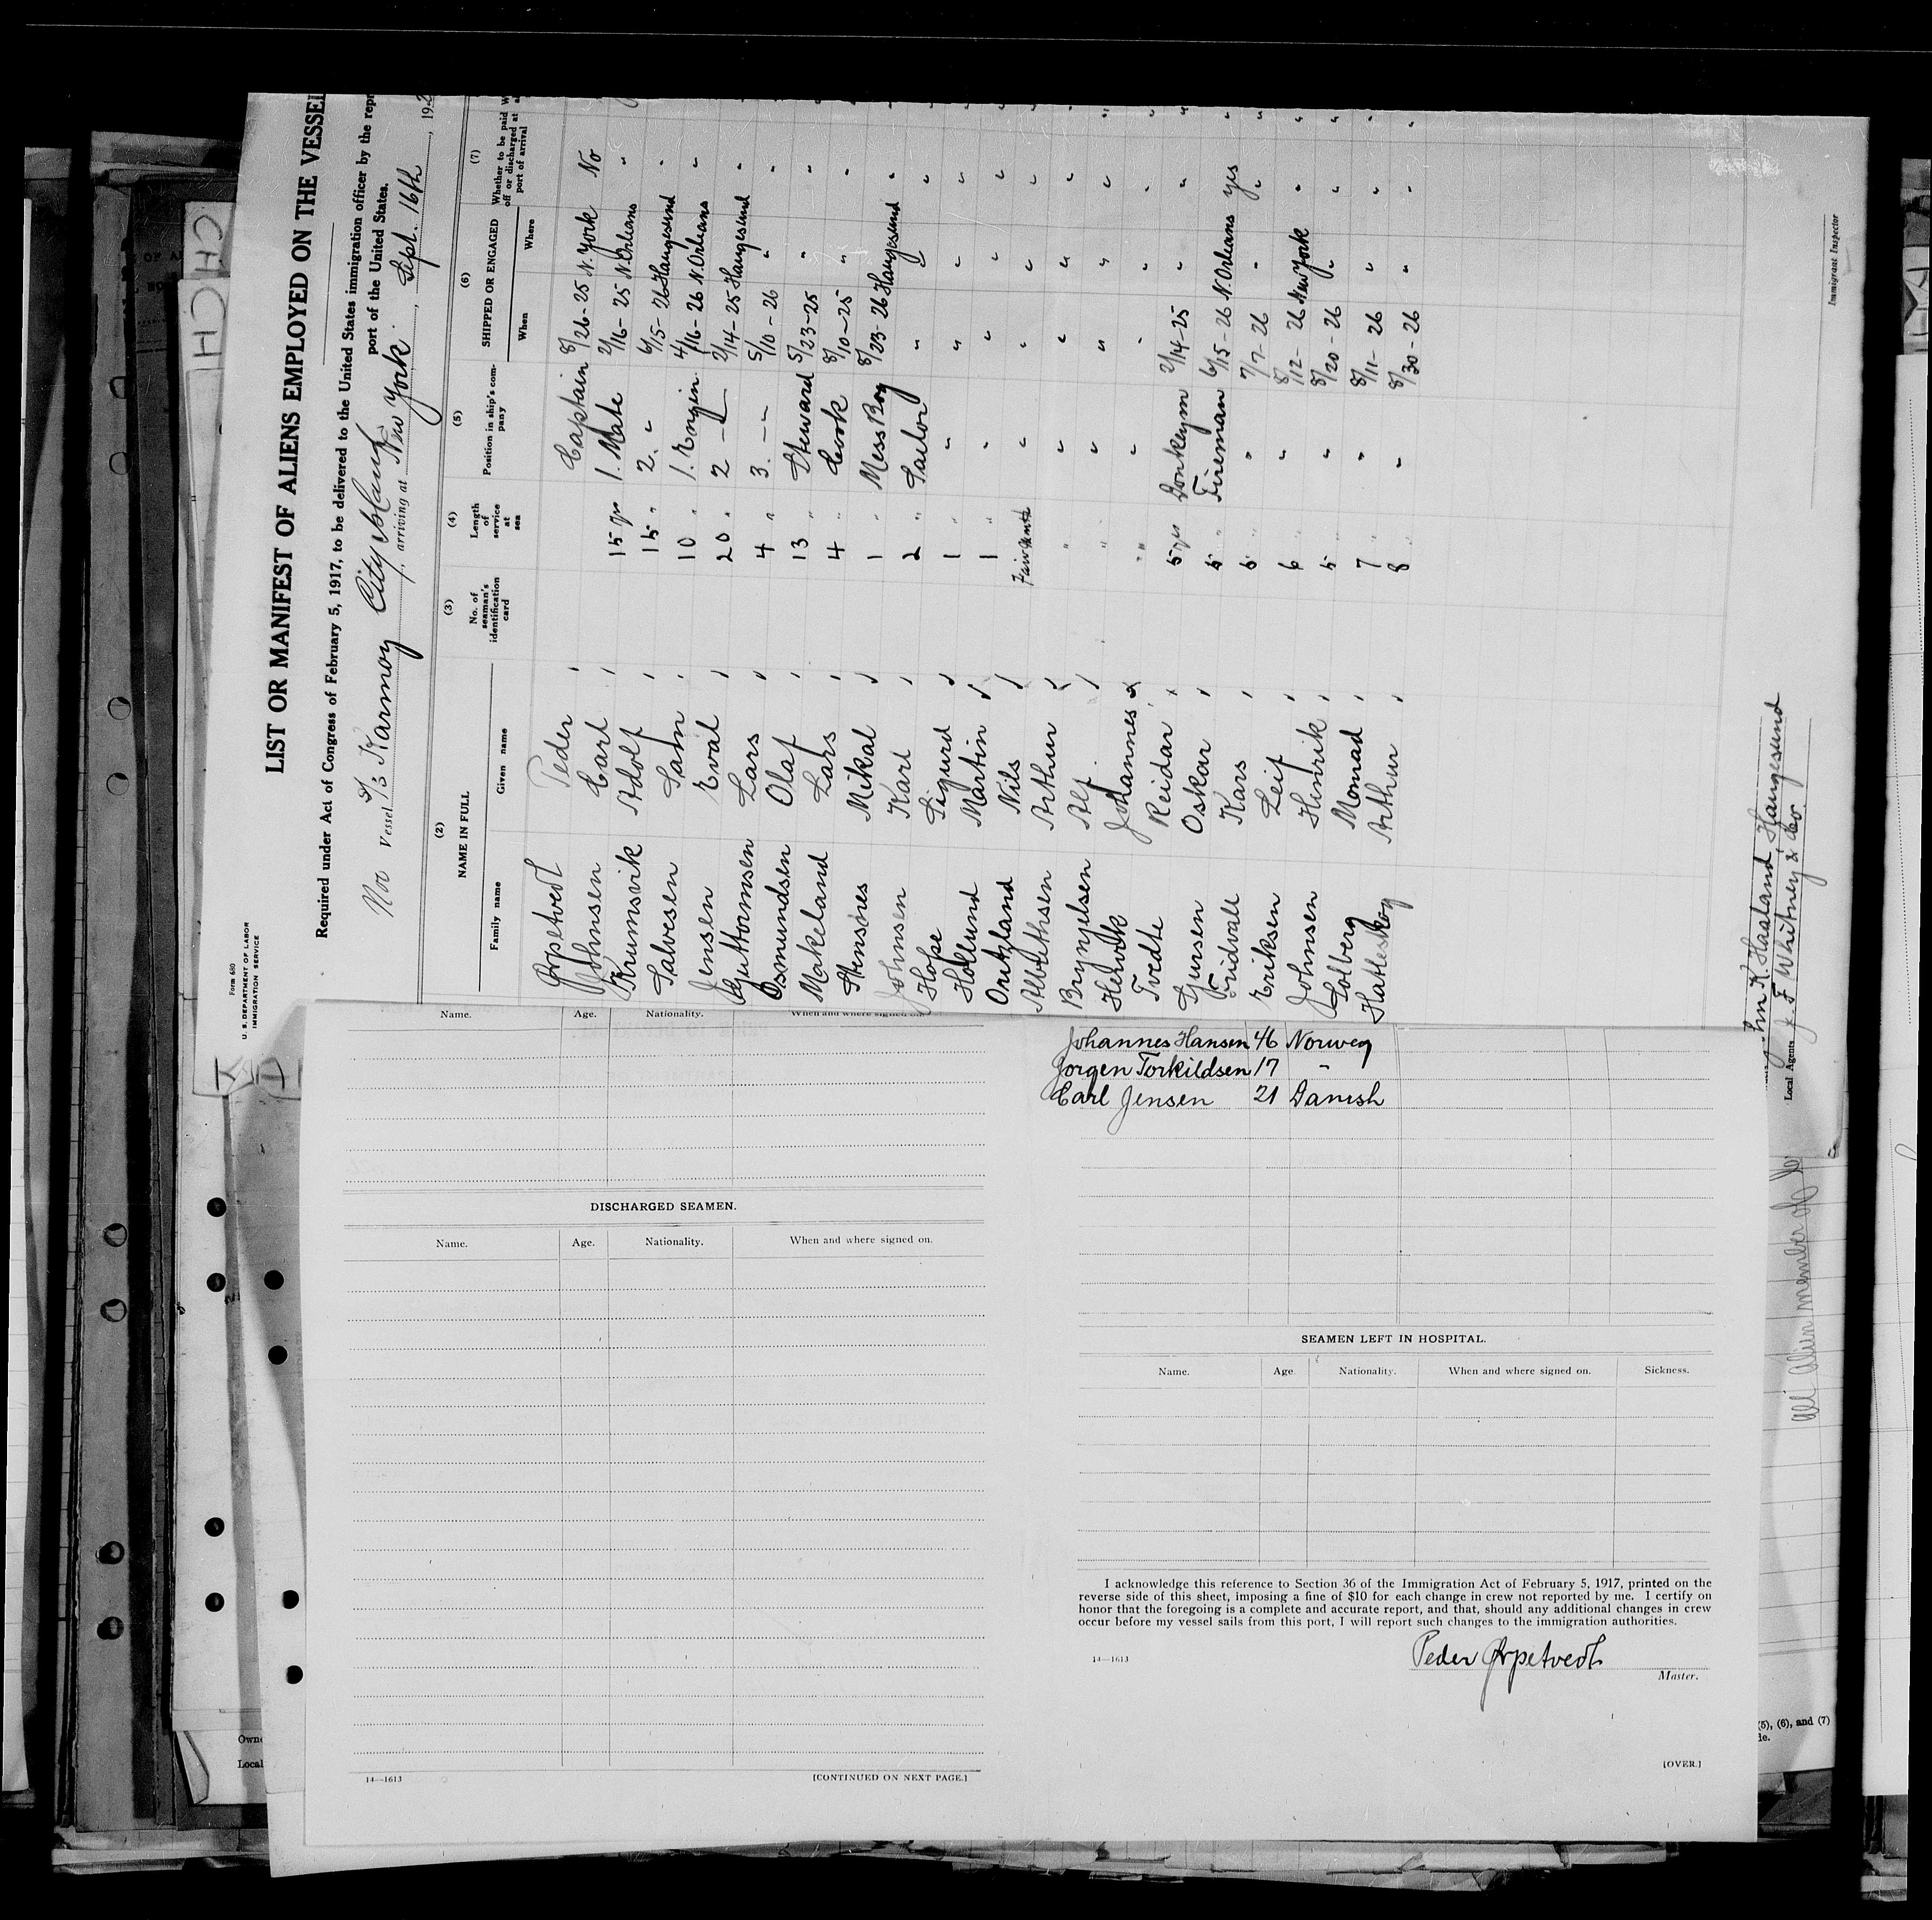 Form 680
U. S. DEPARTMENT OF LABOR
IMMIGRATION SERVICE
LIST OR MANIFEST OF ALIENS EMPLOYED ON THE VESSEL
Required under Act of Congress of February 5, 1917, to be delivered to the United States immigration officer by the repr
port of the United States.
Nor Vessel S/S Karmoy, arriving at New York, Sept. 16th, 192
(2) (3) (4) (5) (6) (7)
NAME IN FULL
Family name Given name
No. of seaman's identification card
Length of service at sea
Position in ship's company
SHIPPED OR ENGAGED
When Where
Whether to be paid off or discharged at port of arrival
Peder Captain 8/26-25 N. York No
Johnsen Carl 15 yrs 1. Mate 2/16-25 N. Orleans "
Brumsvik Adolf 15 " 2. " 6/15-26 Haugesund "
Salvesen Sam 10 " 1. Engin. 4/16-26 N. Orleans "
Jensen Eval 20 " 2 — 2/14-25 Haugesund "
Guttormsen Lars 4 " 3. — 5/10-26 " "
Osmundsen Olaf 13 " Steward 5/23-25 " "
Makeland Lars 4 " Cook 8/10-25 " "
Stensnes Mikal 1 " Mess Boy 8/23-26 Haugesund "
Johnsen Karl 2 " Sailor " " "
Hope Sigurd 1 " " " " "
Hollund Martin 1 " " " " "
Nils " " " "
Arthur " " " " "
Brynjelsen Alf " " " " "
Johannes " " " "
Tvedte Reidar 5 yrs Donkeym 2/14-25 " "
Oskar 5 " Fireman 6/15-26 N. Orleans yes
Kars 5 " " 7/7-26 " "
Eriksen Leif 6 " " 8/12-26 New York "
Johnsen Hinrik 5 " " 8/20-26 " "
Solberg Monrad 7 " " 8/11-26 " "
Arthur 8 " " 8/30-26 " "
K. Haaland, Haugesund
Local Agents J. F. Whitney & Co.
Immigrant Inspector
Name. Age. Nationality. When and where signed on.
Johannes Hansen 46 Norweg
Jorgen Torkildsen 17 "
Carl Jensen 21 Danish
DISCHARGED SEAMEN.
Name. Age. Nationality. When and where signed on.
14—1613 [CONTINUED ON NEXT PAGE.]
SEAMEN LEFT IN HOSPITAL.
Name. Age Nationality. When and where signed on. Sickness.
I acknowledge this reference to Section 36 of the Immigration Act of February 5, 1917, printed on the
reverse side of this sheet, imposing a fine of $10 for each change in crew not reported by me. I certify on
honor that the foregoing is a complete and accurate report, and that, should any additional changes in crew
occur before my vessel sails from this port, I will report such changes to the immigration authorities.
14—1613
Peder
Master.
[OVER.]
Owne
Local
(5), (6), and (7)
All Alien member of